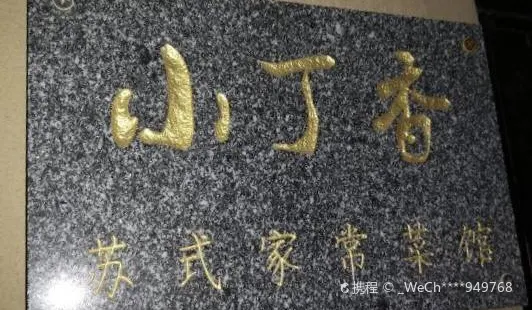 小丁香
苏式家常菜馆
携程 © _WeCh****949768